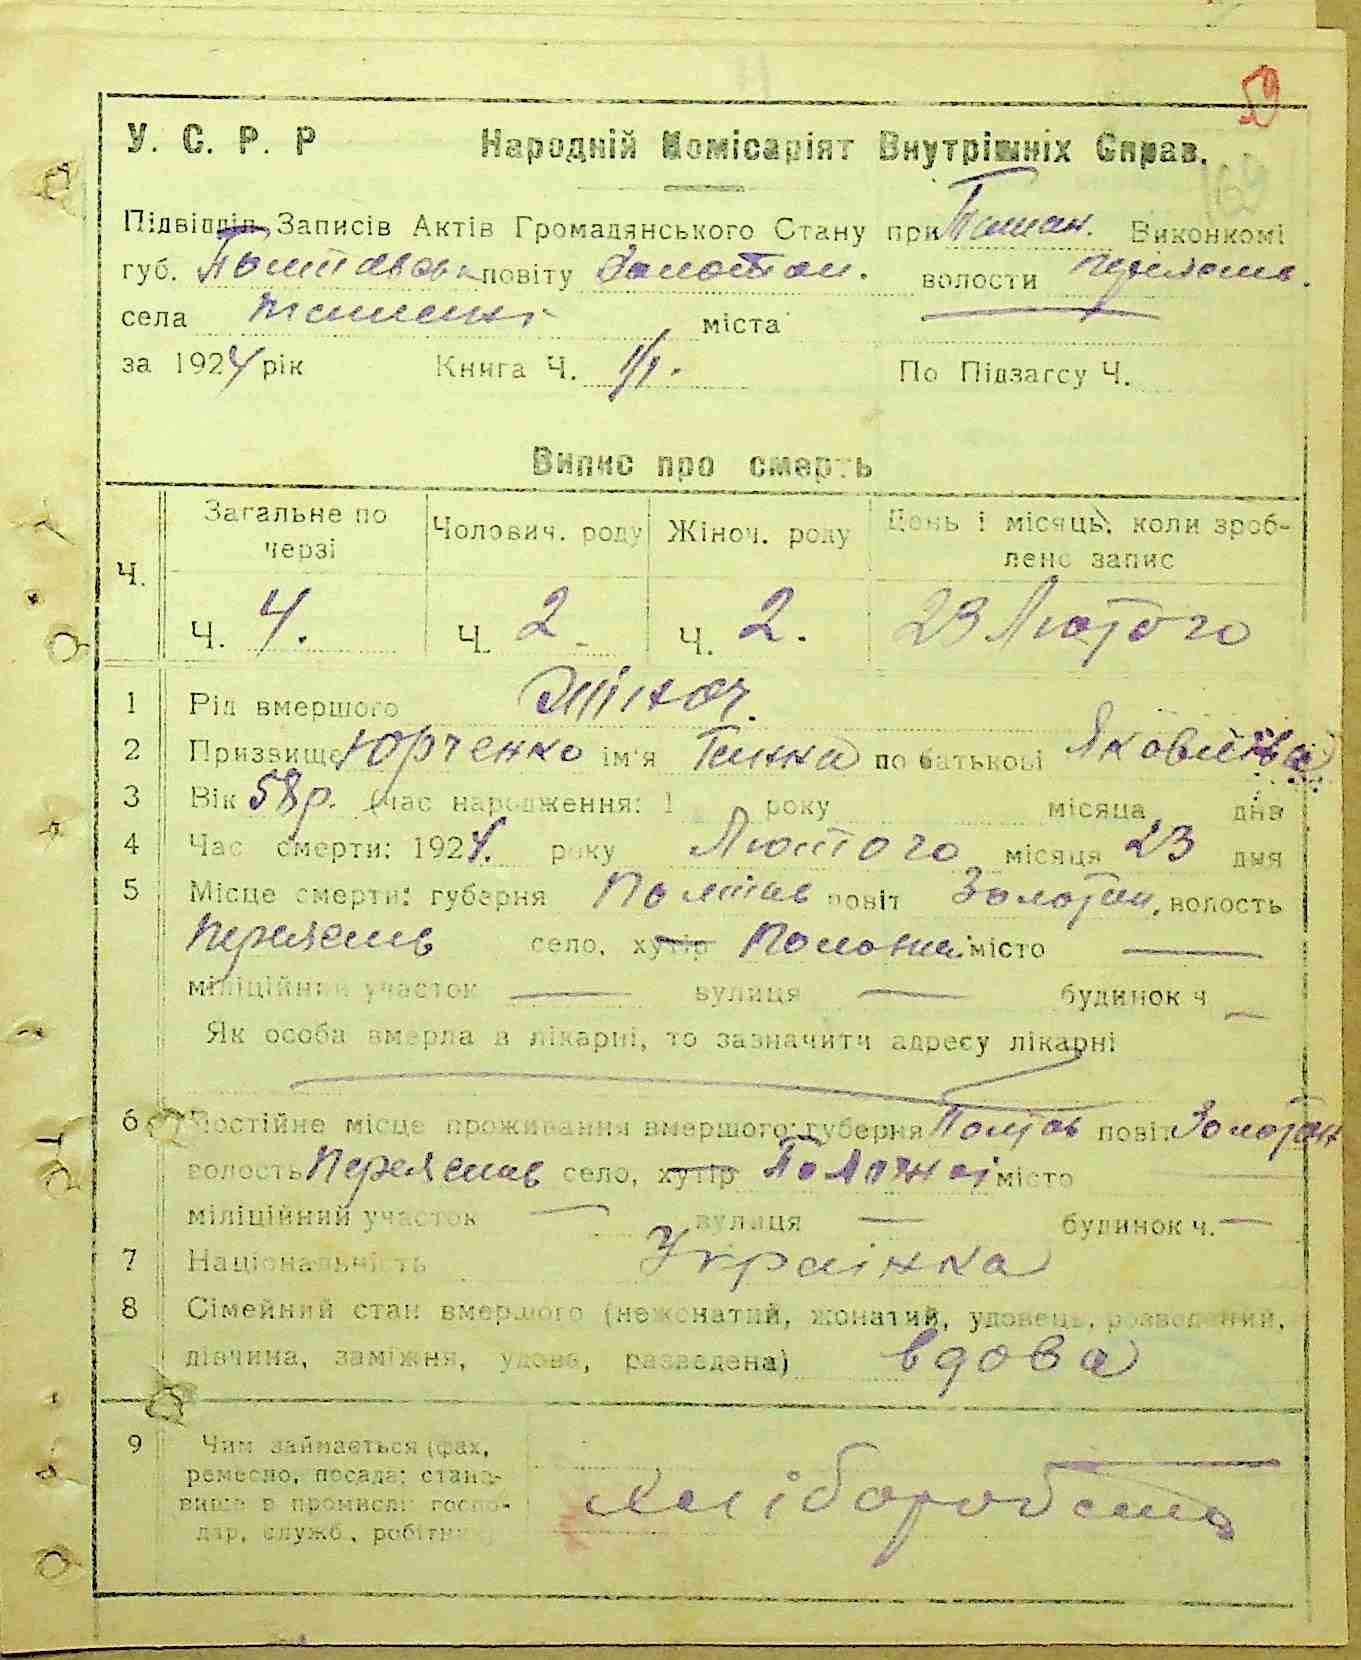 59
У. С. Р. Р Народній Комісаріят Внутрішніх Справ.
Підвідділ Записів Актів Громадянського Стану при Ташан. Виконкомі
губ. Полтавськ повіту Золотон. волости Переясл.
села міста
за 1924 рік Книга Ч. 1/1. По Підзагсу Ч.
Випис про смерть
Ч. Загальне по черзі Чолович. роду Жіноч. роду День і місяць, коли зроблено запис
Ч. 4. Ч. 2 Ч. 2. 23 Лютого
1 Рід вмершого Жіноч.
2 Призвище Юрченко ім'я Ганна по батькові Яковлівна
3 Вік 58 р. (час народження: 1 року місяца дня
4 Час смерти: 1924. року Лютого місяця 23 дня
5 Місце смерти: губерня Полтав повіт Золотон. волость
Переяслав село, хутір місто
міліційний участок вулиця будинок ч
Як особа вмерла в лікарні, то зазначити адресу лікарні
6 Постійне місце проживання вмершого: губерня Полтав повіт Золотон
волость Переяслав село, хутір місто
міліційний участок вулиця будинок ч.
7 Національність Українка
8 Сімейний стан вмершого (нежонатий, жонатий, удовець, розведений,
дівчина, заміжня, удова, разведена) вдова
9 Чим займається (фах,
ремесло, посада: стано-
вище в промислі: госпо-
дар, служб., робітн хліборобство